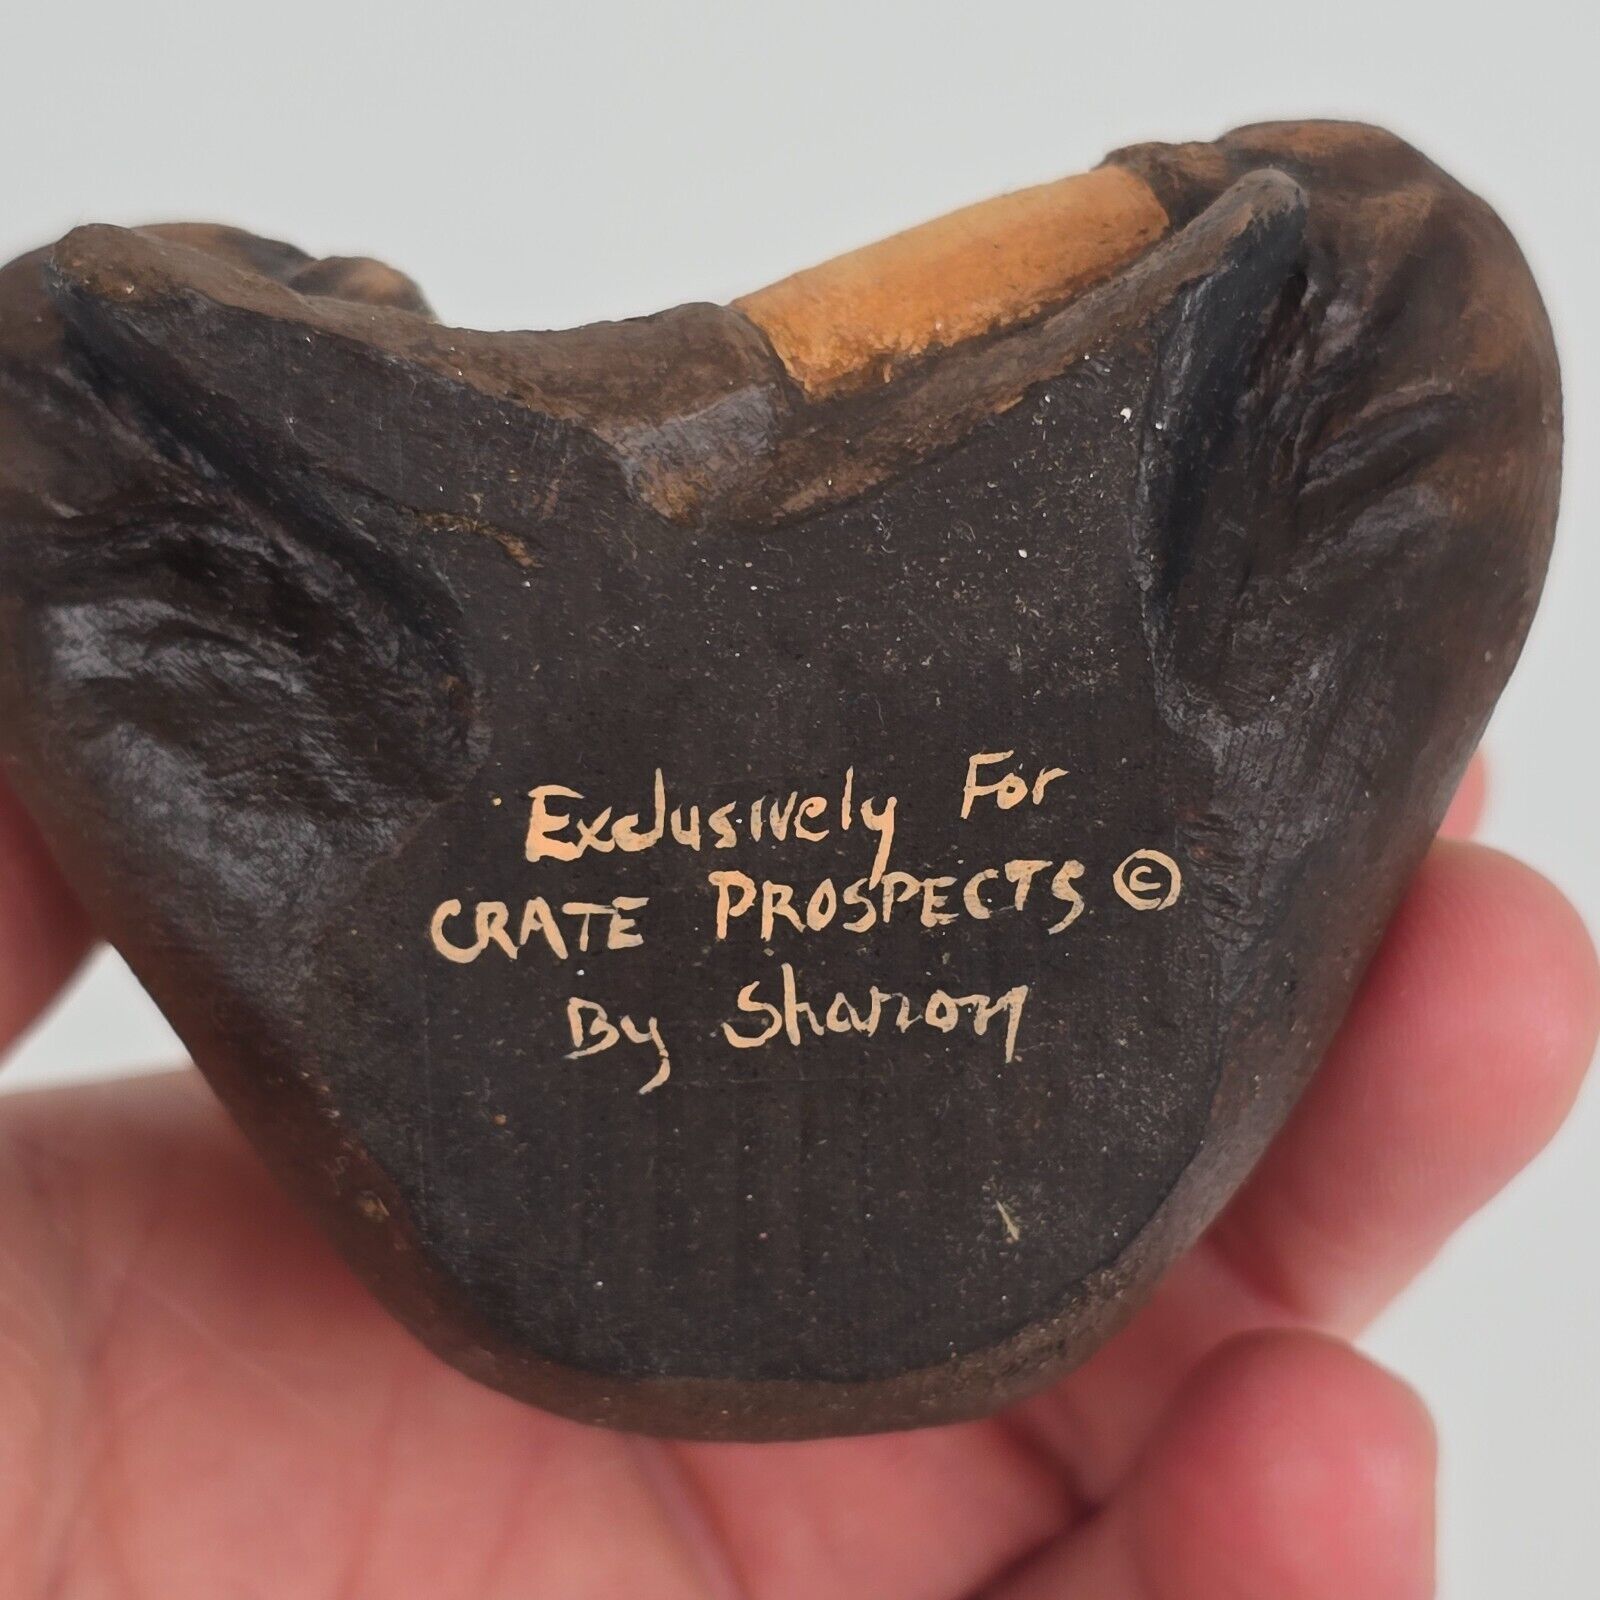 Exclusively For
CRATE PROSPECTS ©
By Sharon